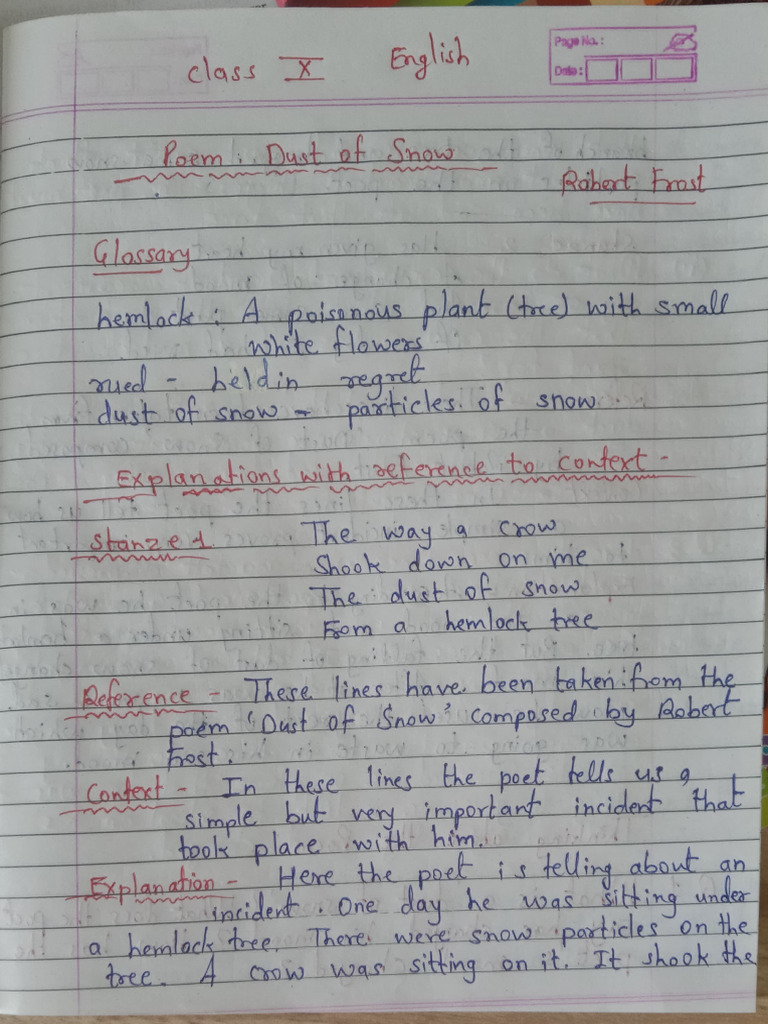 Class X English
Page No.:
Date:
Poem : Dust of Snow
Robert Frost
Glossary
hemlock : A poisonous plant (tree) with small
white flowers
rued - held in regret
dust of snow - particles of snow
Explanations with reference to context -
Stanze 1
The way a crow
Shook down on me
The dust of snow
From a hemlock tree
Reference - These lines have been taken from the
poem 'Dust of Snow' composed by Robert
Frost.
Context - In these lines the poet tells us a
simple but very important incident that
took place with him.
Explanation - Here the poet is telling about an
incident. One day he was sitting under
a hemlock tree. There were snow particles on the
tree. A crow was sitting on it. It shook the